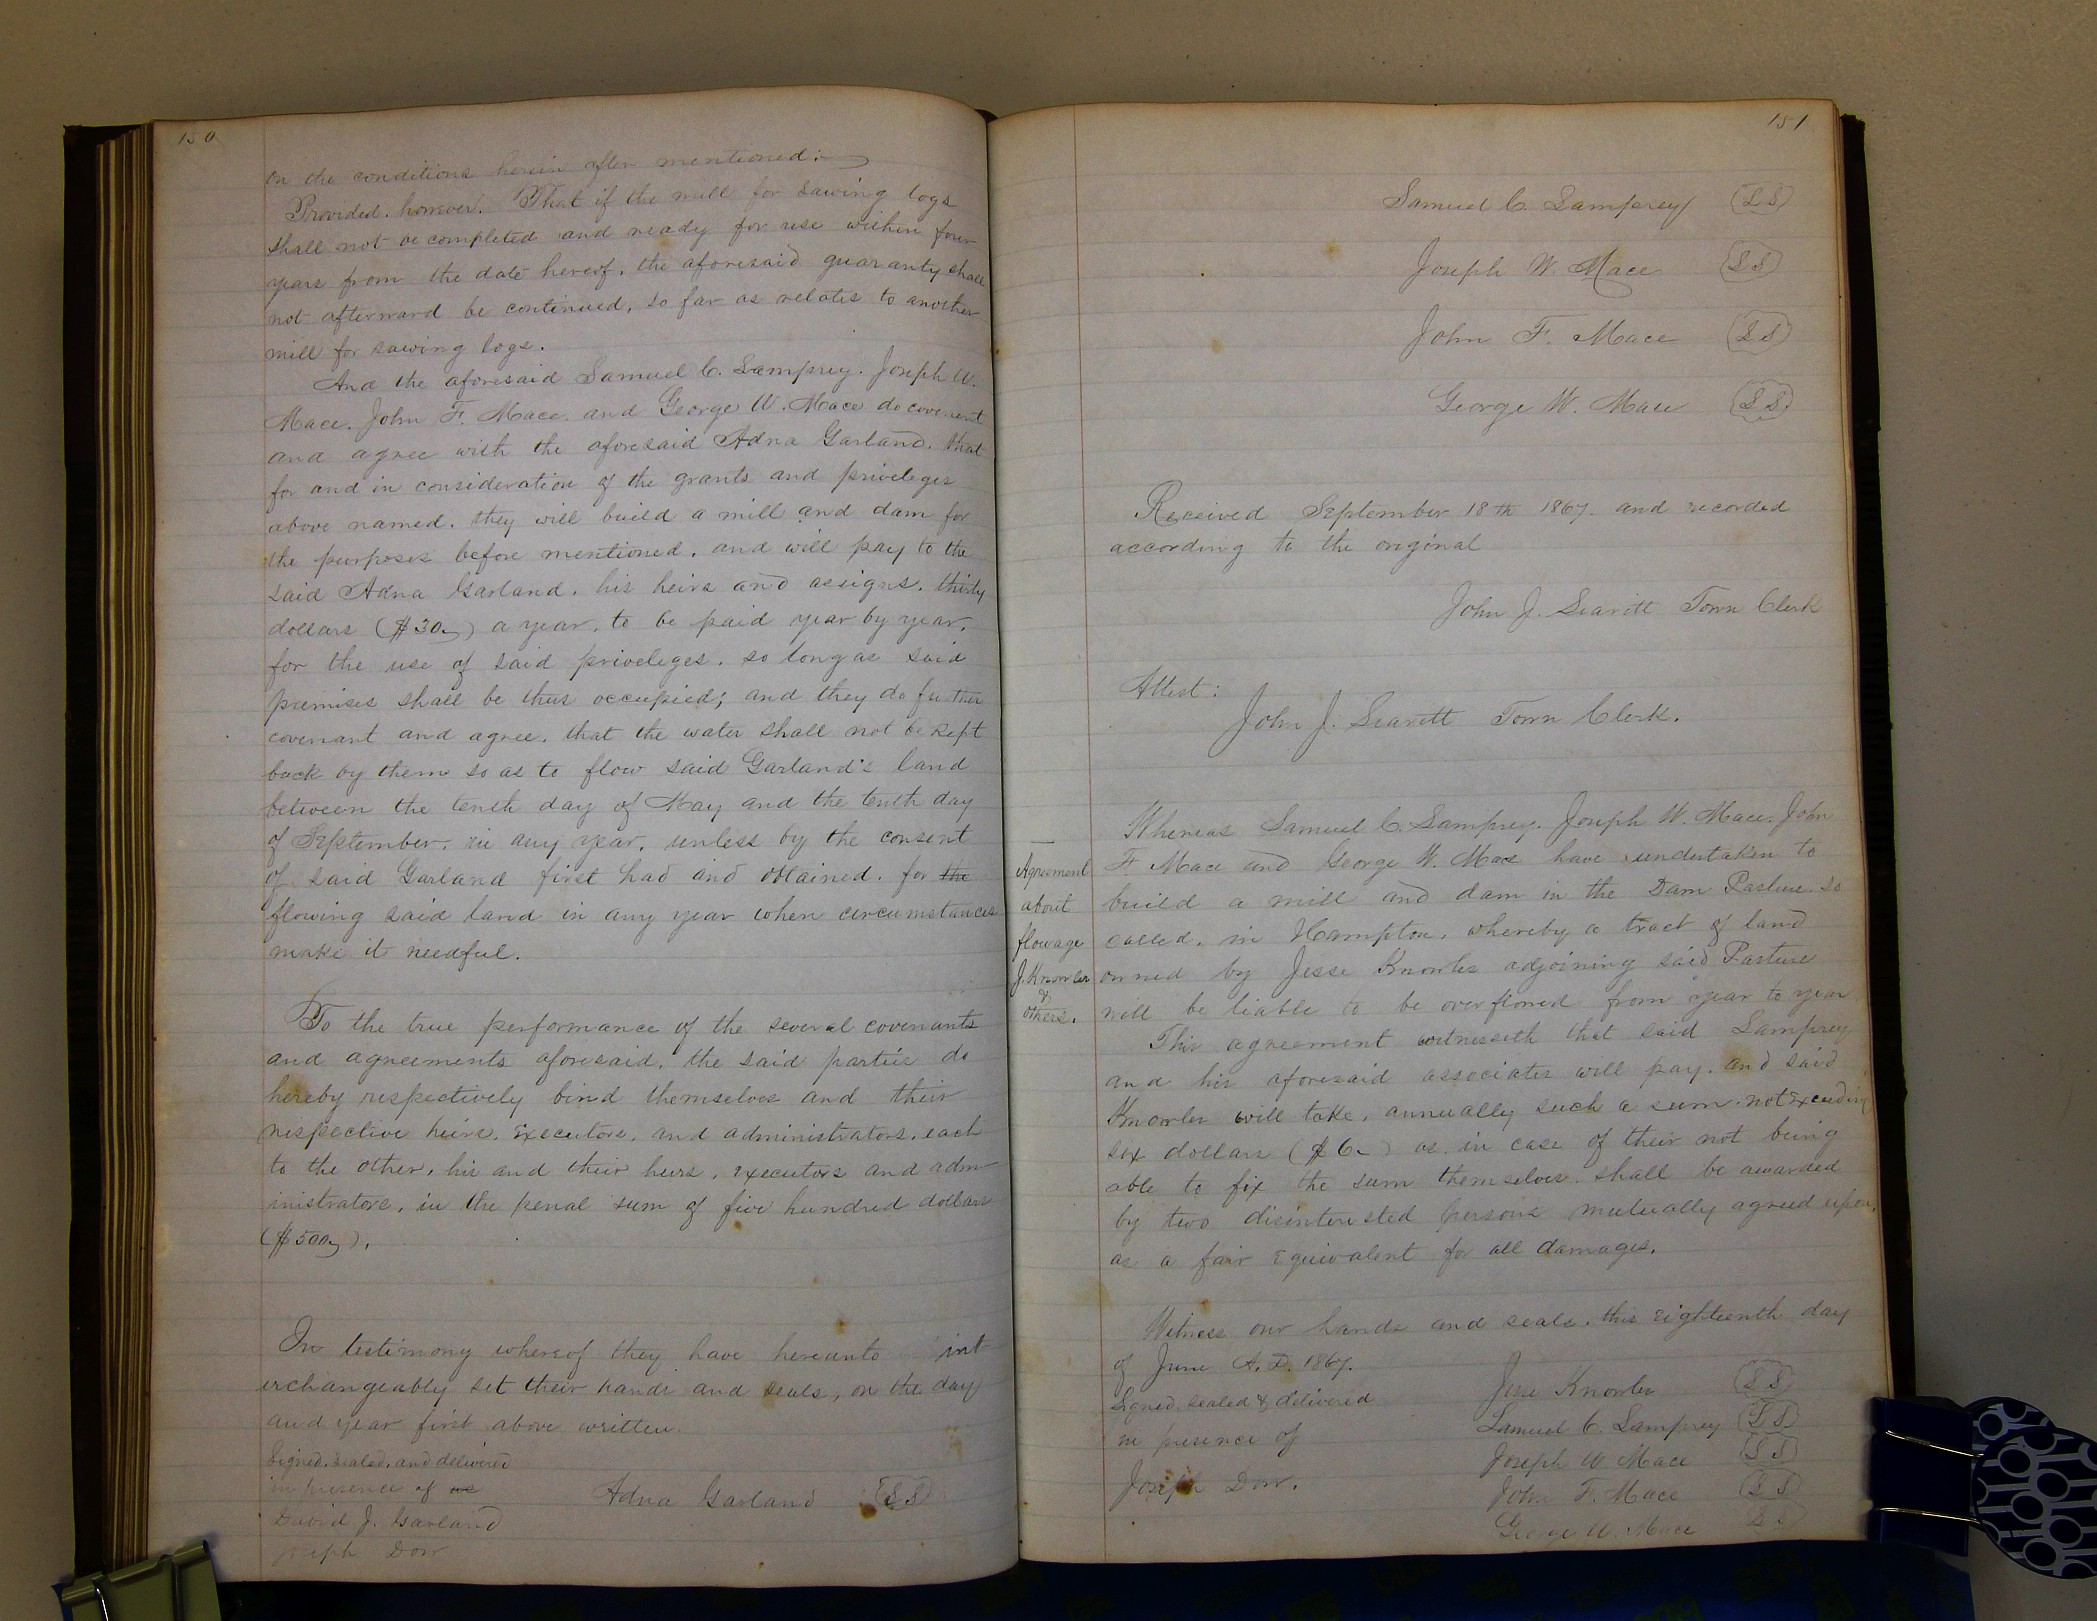 150
on the conditions herein after mentioned:
Provided, however. That if the mill for sawing logs
shall not be completed and ready for use within four
years from the date hereof, the aforesaid guaranty shall
not afterward be continued, so far as relates to another
mill for sawing logs.
And the aforesaid Samuel C. Lamprey. Joseph W.
Mace. John F. Mace. and George W. Mace do covenant
and agree with the aforesaid Adna Garland. that
for and in consideration of the grants and priveleges
above named. they will build a mill and dam for
the purposes before mentioned. and will pay to the
said Adna Garland. his heirs and assigns. thirty
dollars ($30.) a year. to be paid year by year.
for the use of said priveleges. so long as said
premises shall be thus occupied; and they do further
covenant and agree. that the water shall not be kept
back by them so as to flow said Garland's land
between the tenth day of May and the tenth day
of September. in any year. unless by the consent
of said Garland first had and obtained. for the
flowing said land in any year when circumstances
make it needful.
To the true performance of the several covenants
and agreements aforesaid. the said partie do
hereby respectively bind themselves and their
respective heirs. executors. and administrators. each
to the other, his and their heirs, executors and adm-
inistrators, in the penal sum of five hundred dollars
($500.).
In testimony whereof they have hereunto int-
erchangeably set their hands and seals, on the day
and year first above written.
Signed. sealed. and delivered
in presence of us
Adna Garland (L S)
David J. Garland
Joseph Dow
151
Samuel C. Lamprey (L S)
Joseph W. Mace (L S)
John F. Mace (L S)
George W. Mace (L S)
Received September 18th 1867. and recorded
according to the original
John J. Leavitt Town Clerk
Attest:
John J. Leavitt Town Clerk.
Agreement
about
flowage
J. Knowles
&
others.
Whereas Samuel C. Lamprey. Joseph W. Mace. John
F. Mace and George W. Mace have undertaken to
build a mill and dam in the Dam Pasture so
called. in Hampton. whereby a tract of land
owned by Jesse Knowles adjoining said Pasture
will be liable to be overflowed from year to year
This agreement witnesseth that said Lamprey
and his aforesaid associates will pay. and said
Knowles will take. annually such a sum. not exceeding
six dollars ($6.) as. in case of their not being
able to fix the sum themselves. shall be awarded
by two disinterested persons mutually agreed upon.
as a fair equivalent for all damages.
Witness our hands and seals. this eighteenth day
of June A. D. 1867.
Signed, sealed & delivered
in presence of
Joseph Dow.
Jesse Knowles (L S)
Samuel C. Lamprey (L S)
Joseph W. Mace (L S)
John F. Mace (L S)
George W. Mace L S